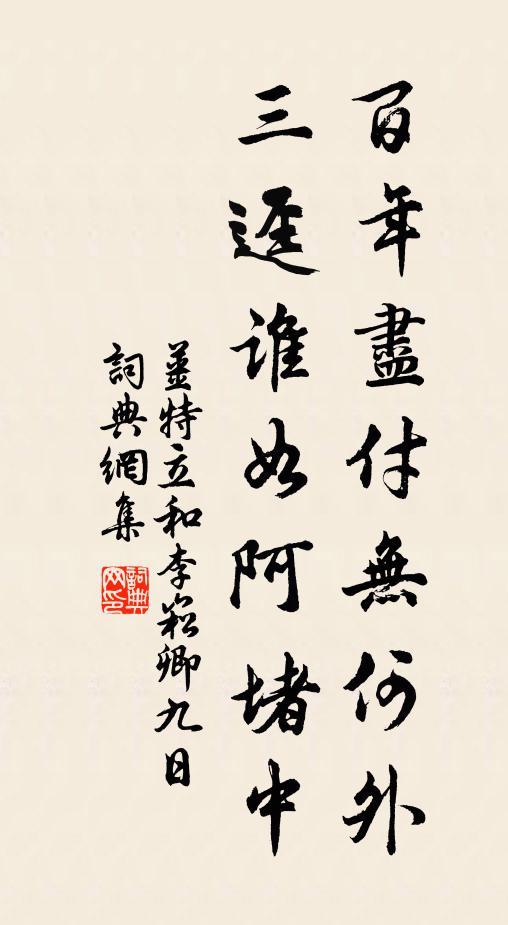 百年盡付無何外
三逕誰如阿堵中
薑特立和李崧卿九日
詞典網集
詞典
网印